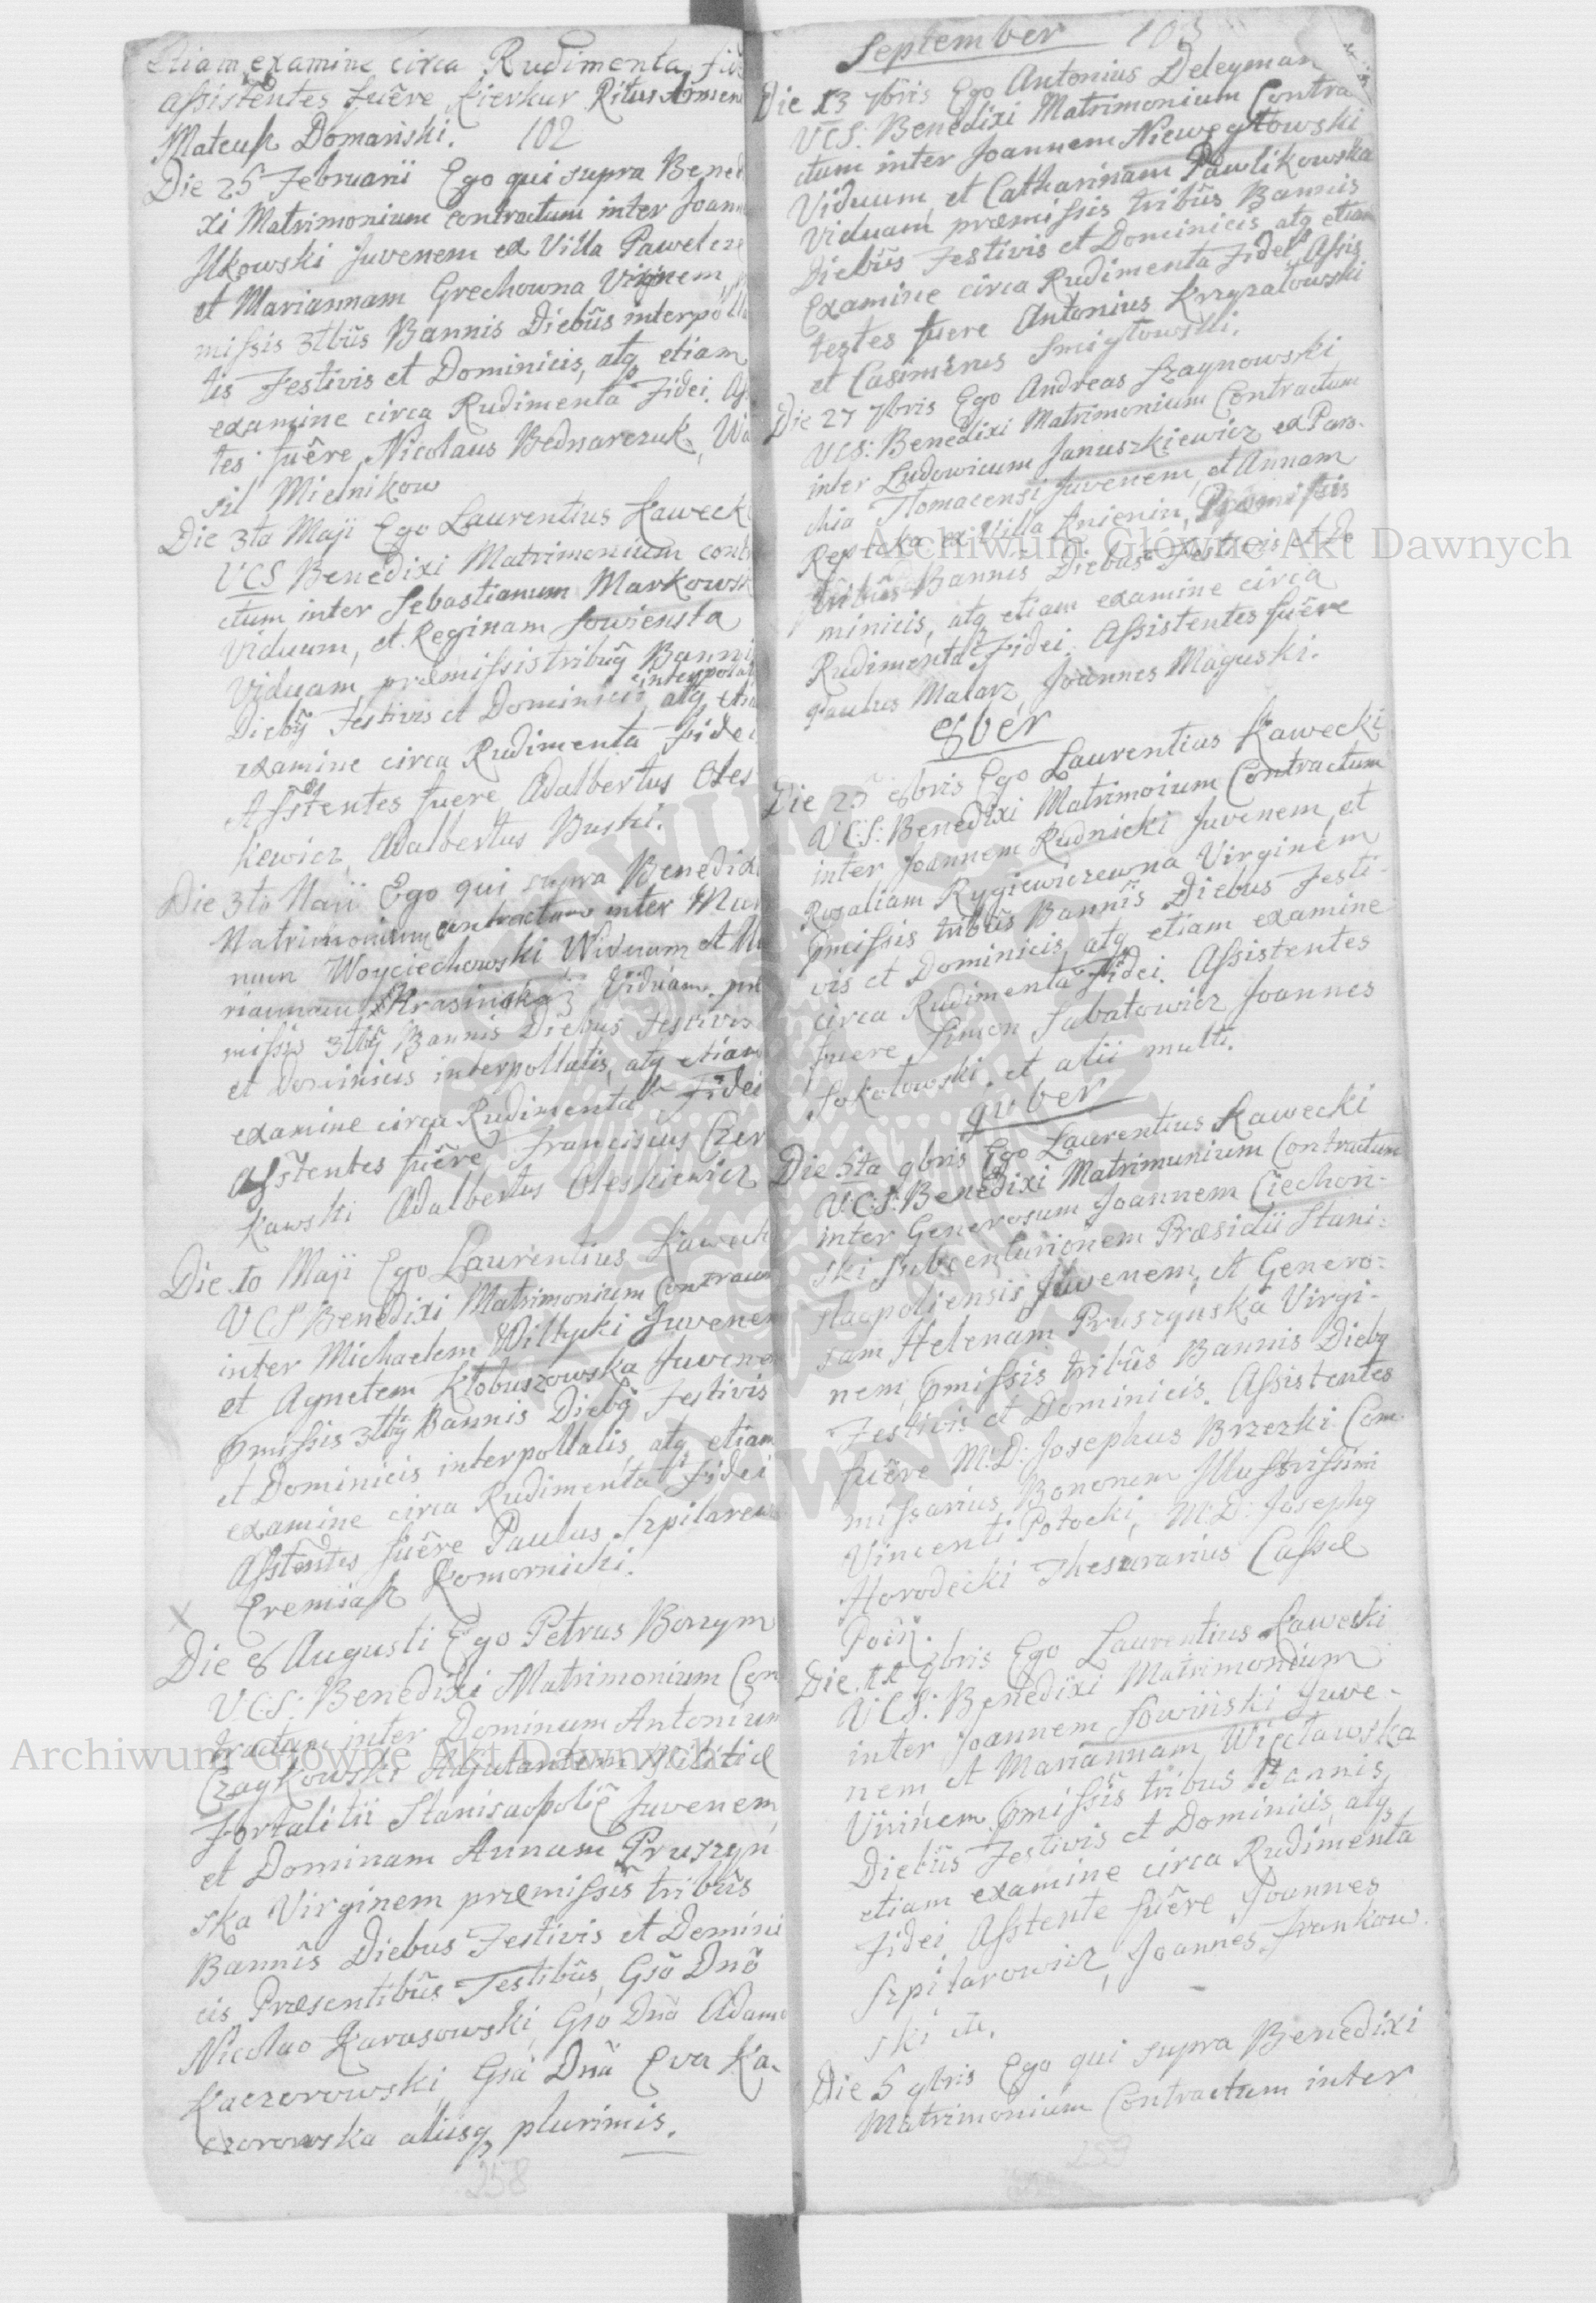 Etiam examine circa Rudimenta fid
assistentes fuêre Kierkur Ritus Armen
Mateusz Domański. 102
Die 25 Februarii Ego qui supra Bened
xi Matrimonium contractum inter Joann
Ilkowski Juvenem ex Villa Pawelcze
et Mariannam Grechowna Virginem,
missis 3tbûs Bannis Diebûs interpolla
tis Festivis et Dominicis, atq etiam
examine circa Rudimenta Fidei. As
tes fuêre Nicolaus Bednarczuk, Wa
sil Mielnikow
Die 3ta Maji Ego Laurentius Kaweck
VCS Benedixi Matrimonium contr
ctum inter Sebastianum Markowsk
Viduum, et Reginam Sowienska
Viduam præmissis tribuq Banni
interpolat
Diebq Festivis et Dominicis atq etia
examine circa Rudimenta fidei
Asstentes fuere Adalbertus Oles
kiewicz Adalbertus Buski.
Die 3ta Maii Ego qui supra Benedixi
Matrimonium contractum inter Mar
num Woyciechowski Widuum et Ma
riannam Krasinska Viduam. præ
missis 3tbq Bannis Diebus Festivis
et Dominicis interpollatis, atq etiam
examine circa Rudimenta Fidei
Asstentes fuêre Franciscus Czer
kawski Adalbertus Oleskiewicz
Die to Maji Ego Laurentius Kaweck
VCS Benedixi Matrimonium Contractum
inter Michaelem Willycki Juvenem
et Agnetem Kłobuszowska Juvenem
pmissis 3tbq Bannis Diebq Festivis
et Dominicis interpollatis, atq etiam
examine circa Rudimenta Fidei
Asstentes fuêre Paulus Szpilarew
Eremiasz Komornicki.
X
Die 8 Augusti Ego Petrus Borzym
V:C:S: Benedixi Matrimonium Con
tractum inter Dominum Antonium
Czaykowski Adjutantem Militiæ
Fortalitii Stanisaopolię Juvenem,
et Dominam Annam Pruszyń
ska Virginem præmissis tribûs
Bannis Diebus Festivis et Domini
cis Præsentibûs Testibûs, Gsô Dnô
Nicolao Karasowski, Gso Dnô Adamo
Kaczorowski Gsâ Dnâ Eva Ka,
czorowska aliisq plurimis.
258
September 103
Die 13 7bris Ego Antonius Deleyman
VCS: Benedixi Matrimonium Contra
ctum inter Joannem Niewęgłowski
Viduum et Catharinam Pawlikowska
Viduam præmissis tribûs Bannis
Diebûs Festivis et Dominicis atq etiam
Examine circa Rudimenta Fidei Assis
testes fuere Antonius Krzyzatowski
et Casimirus Smigłowski.
Die 27 7bris Ego Andreas Szaynowski
VCS: Benedixi Matrimonium Contractum
inter Ludowicum Januszkiewicz ex Paro-
chia Tłomacensi Juvenem, et Annam
Reptcka ex Villa Knienin, Præmissis
tribûs Bannis Diebus Festivis et Do
minicis, atq etiam examine circa
Rudimenta Fidei. Assistentes fuêre
Paulus Malarz, Joannes Maguski.
8ber
Die 25 8bris Ego Laurentius Kawecki
V:C:S: Benedixi Matrimonium Contractum
inter Joannem Rudnicki Juvenem, et
Rozaliam Rygiewiczewna Virginem
pmissis tribûs Bannis Diebus Festi-
vis et Dominicis atq etiam examine
circa Rudimenta Fidei. Assistentes
fuere Simon Sabatowicz Joannes
Sokołowski et alii multi.
9vber
Die 5ta 9bris Ego Laurentius Kawecki
V:C:S: Benedixi Matrimunium Contractum
inter Generosum Joannem Ciechon-
ski Subcenturionem Præsidii Stani-
slaopoliensis Juvenem, et Genero-
sam Helenam Pruszyńska Virgi-
nem, pmissis tribûs Bannis Diebq
Festivis et Dominicis. Assistentes
fuêre M:D: Josephus Brzezki Com
missarius Bononem Illustrissimi
Vincenti Potocki, M:D: Josephq
Horodecki Thesurarius Cassæ
Die 11 9bris Ego Laurentius Kawecki
VCS: Benedixi Matrimonium
inter Joannem Sowinski Juve-
nem, et Mariannam Więcławska
Virinem pmissis tribus Bannis
Diebûs Festivis et Dominicis, atq
etiam examine circa Rudimenta
Fidei Asstente fuêre Joannes
Szpilarowicz, Joannes Frankow
ski etc.
Die 5 9bris Ego qui supra Benedixi
Matrimonium Contractum inter
259
Archiwum Główne Akt Dawnych
Archiwum Główne Akt Dawnych